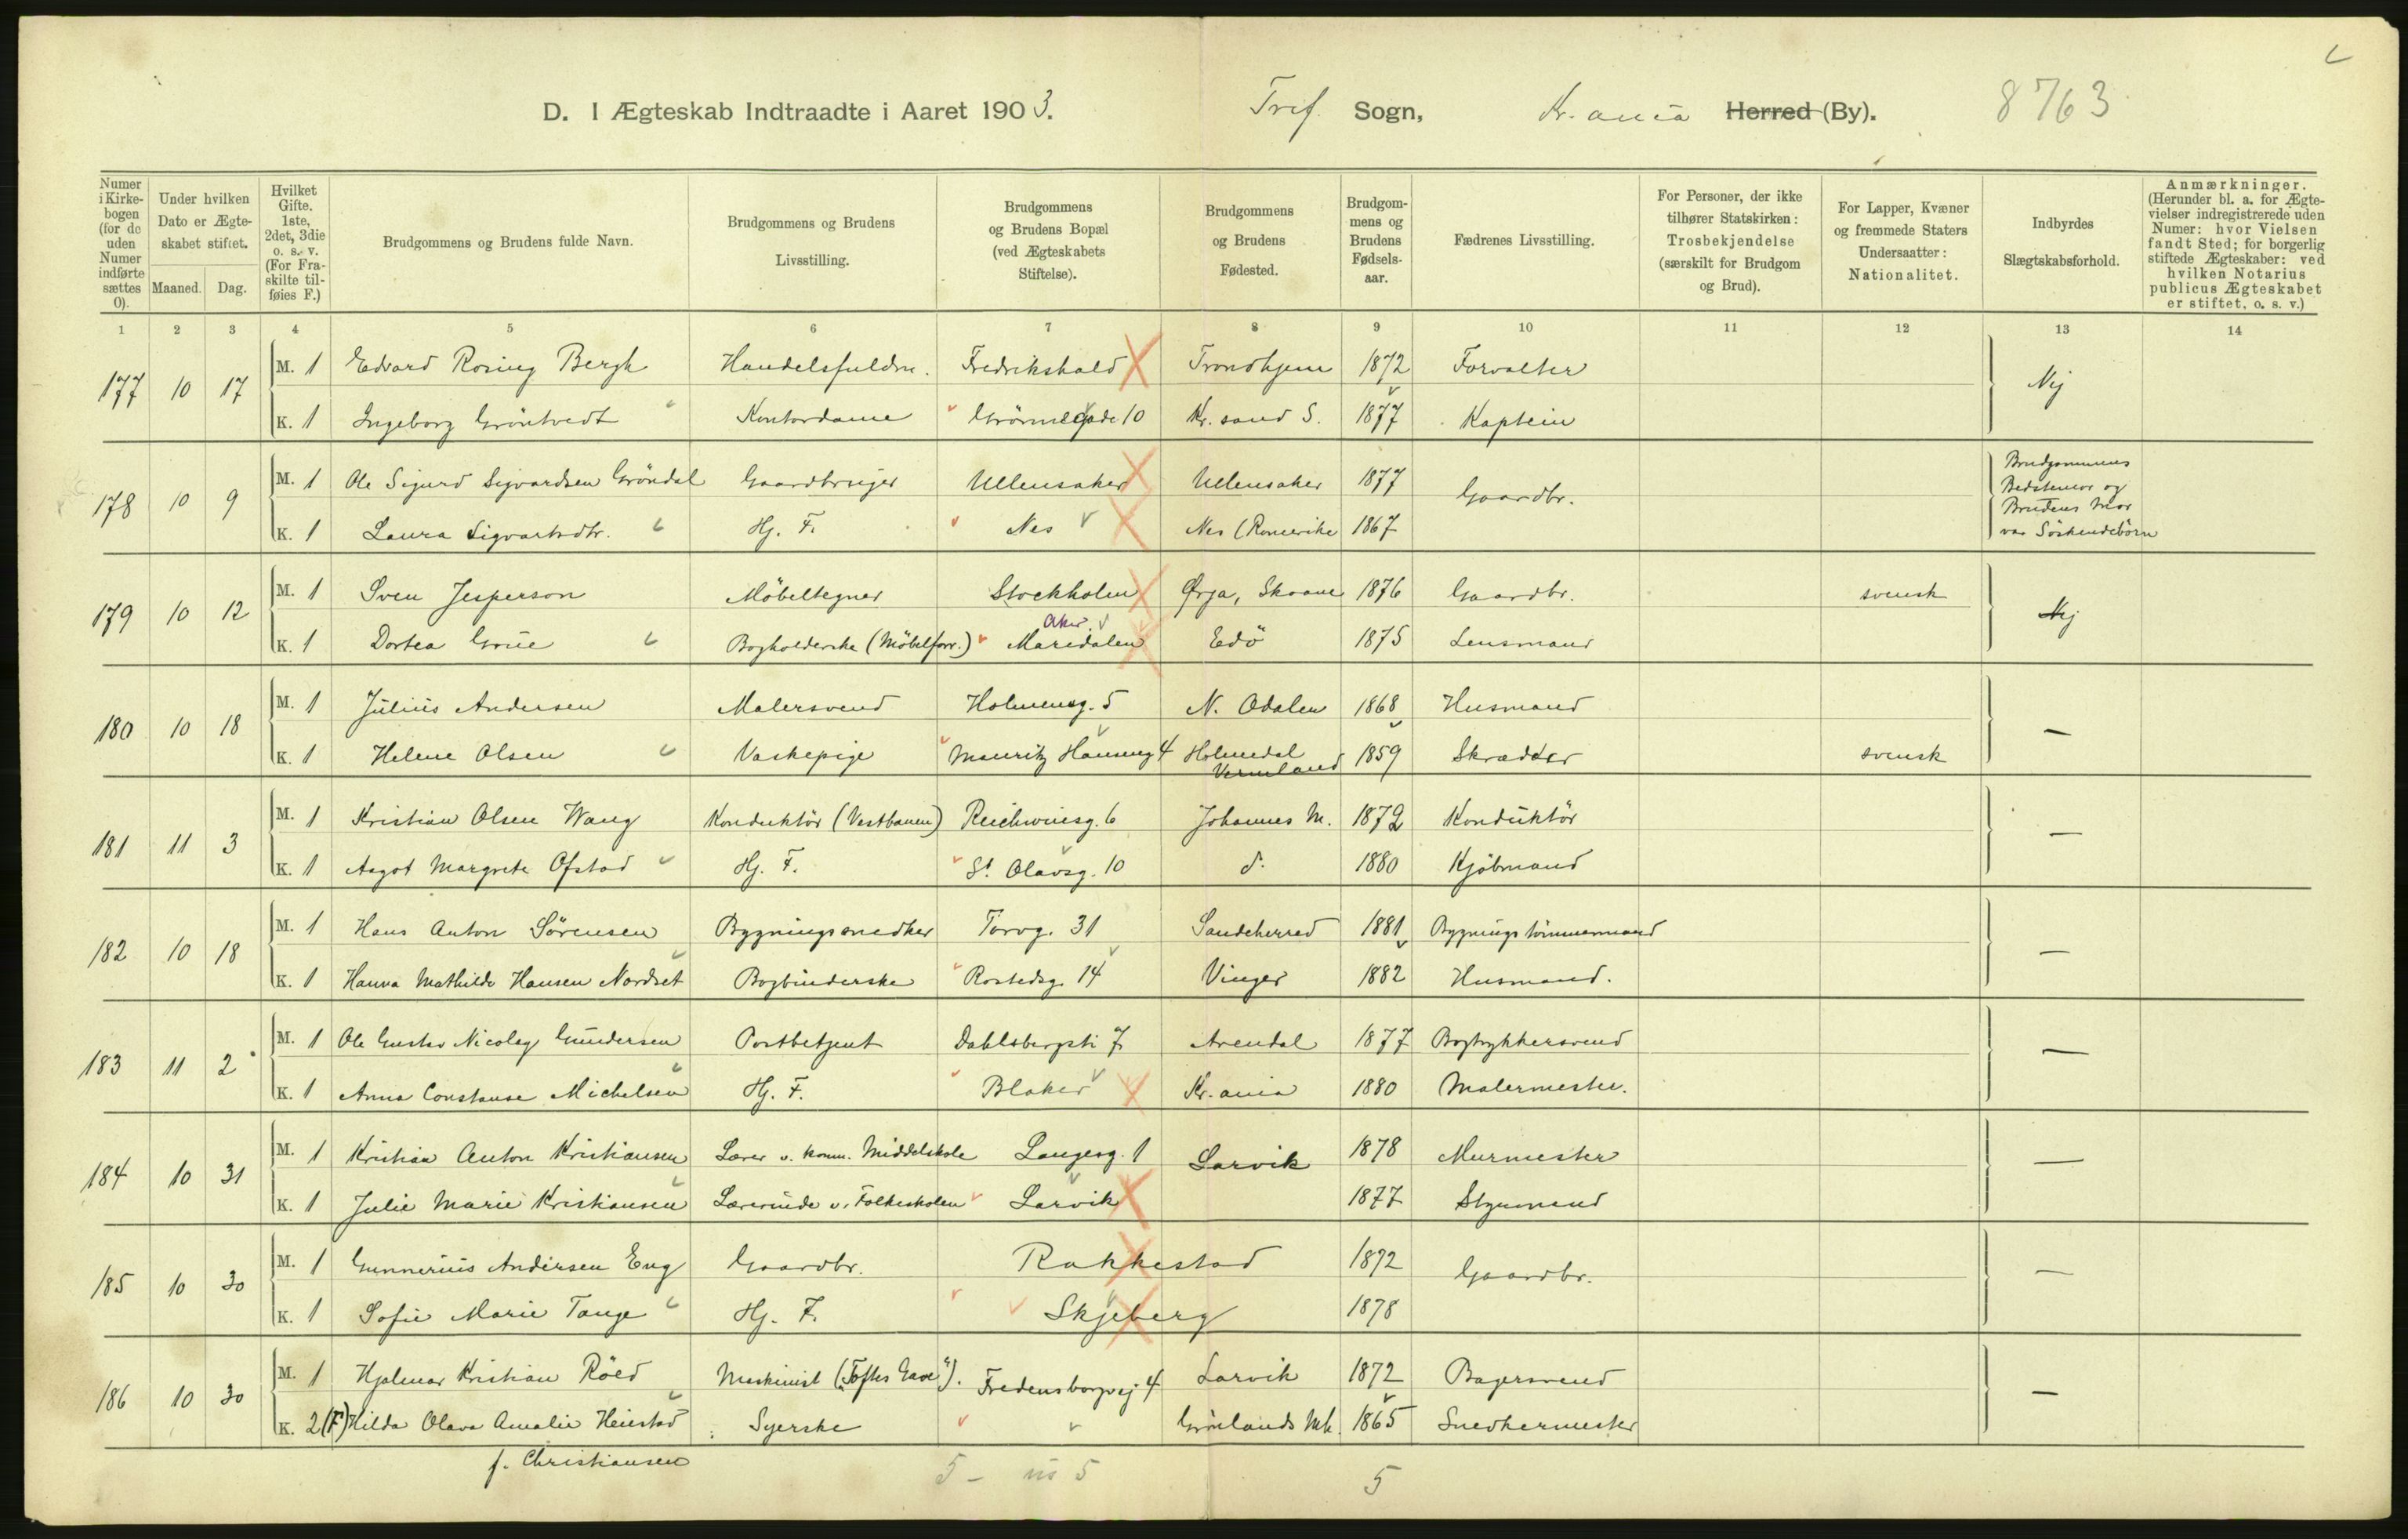 D. I Ægteskab Indtraadte i Aaret 1903. Tref. Sogn, Kr.ania Herred (By). 8763
Numer i Kirkebogen (for de uden Numer indførte sættes 0).
Under hvilken Dato er Ægteskabet stiftet.
Maaned. Dag.
Hvilket Gifte. 1ste, 2det, 3die o. s. v. (For Fraskilte tilføies F.)
Brudgommens og Brudens fulde Navn.
Brudgommens og Brudens Livsstilling.
Brudgommens og Brudens Bopæl (ved Ægteskabets Stiftelse).
Brudgommens og Brudens Fødested.
Brudgommens og Brudens Fødselsaar.
Fædrenes Livsstilling.
For Personer, der ikke tilhører Statskirken: Trosbekjendelse (særskilt for Brudgom og Brud).
For Lapper, Kvæner og fremmede Staters Undersaatter: Nationalitet.
Indbyrdes Slægtskabsforhold.
Anmærkninger. (Herunder bl. a. for Ægtevielser indregistrerede uden Numer: hvor Vielsen fandt Sted; for borgerlig stiftede Ægteskaber: ved hvilken Notarius publicus Ægteskabet er stiftet, o. s. v.)
1 2 3 4 5 6 7 8 9 10 11 12 13 14
177 10 17 M. 1 Edvard Rosing Bergh Handelsfuldm. Fredrikshald Trondhjem 1872 Forvalter Nej
K. 1 Ingeborg Gröntvedt Kontordame Grönnegade 10 Kr.sand S. 1877 Kaptein
178 10 9 M. 1 Ole Sigurd Sigvardsen Gröndal Gaardbruger Ullensaker Ullensaker 1877 Gaardbr. Brudgommens Bedstemor og Brudens Mor var Söskendebörn
K. 1 Laura Sigvartsdtr. Hj. F. Nes Nes (Romerike 1867
179 10 12 M. 1 Sven Jesperson Möbeltegner Stockholm Ørja, Skaane 1876 Gaardbr. svensk Nej
K. 1 Dortea Grüe Bogholderske (Möbelforr.) Aker. Maridalen Edö 1875 Lensmand
180 10 18 M. 1 Julius Andersen Malersvend Holmensg. 5 N. Odalen 1868 Husmand —
K. 1 Helene Olsen Vaskepige Mauritz Hansensg 4 Holmedal Vermland 1859 Skrædder svensk
181 11 3 M. 1 Kristian Olsen Wang Konduktör (Vestbanen) Reichweinsg. 6 Johannes M. 1872 Konduktör —
K. 1 Aagot Margrete Ofstad Hj. F. St. Olavsg. 10 d. 1880 Kjöbmand
182 10 18 M. 1 Hans Anton Sörensen Bygningssnedker Torvg. 31 Sandeherred 1881 Bygningstömmermand —
K. 1 Hanna Mathilde Hansen Nordset Bogbinderske Rostedsg. 14 Vinger 1882 Husmand.
183 11 2 M. 1 Ole Gustav Nicolay Gundersen Postbetjent Dahlsbergsti 7 Arendal 1877 Bogtrykkersvend —
K. 1 Anna Constanse Michelsen Hj. F. Blaker Kr.ania 1880 Malermester.
184 10 31 M. 1 Kristian Anton Kristiansen Lærer v. komm. Middelskole Langesg. 1 Larvik 1878 Murmester —
K. 1 Julie Marie Kristiansen Lærerinde v. Folkeskolen Larvik 1877 Styrmand
185 10 30 M. 1 Gunnerius Andersen Eng Gaardbr. Rakkestad 1872 Gaardbr. —
K. 1 Sofie Marie Tange Hj. F. Skjeberg 1878
186 10 30 M. 1 Hjalmar Kristian Röed Maskinist ("Toftes Gave"). Fredensborgvej 4 Larvik 1872 Bagersvend —
K. 2 (F) Hilda Olava Amalie Heiestad Syerske Grönlands Mh. 1865 Snedkermester
f. Christiansen
5 – 5 5